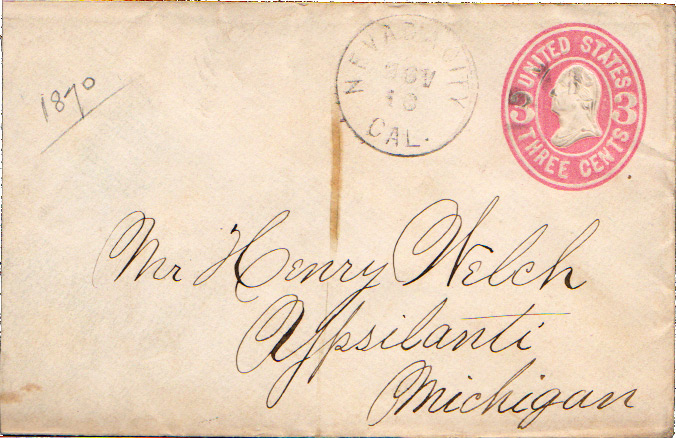 1870
NEVADA CITY
NOV
18
CAL.
UNITED STATES
3 3
THREE CENTS
Mr Henry Welch
Ypsilanti
Michigan